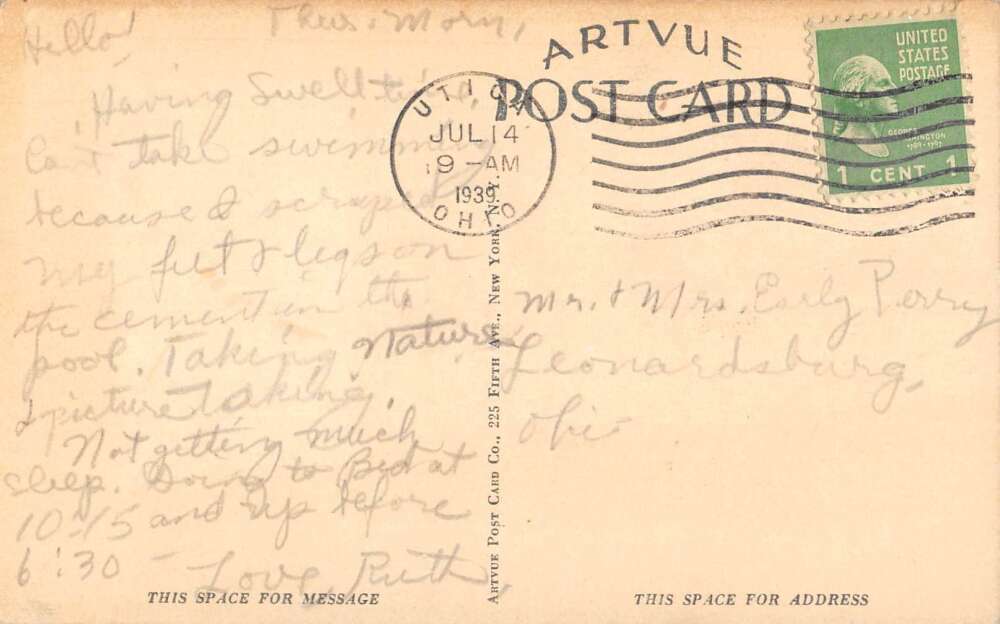 Thurs. Morn,
Hello!
Having Swell time,
Can't take swimming
because I scraped
my feet & legs on
the cement in the
pool. Taking Nature
& picture taking.
Not getting much
sleep. Going to Bed at
10:15 and up before
6:30 –
Love, Ruth,
THIS SPACE FOR MESSAGE
ARTVUE
POST CARD
UTICA
JUL 14
9-AM
1939
OHIO
UNITED
STATES
POSTAGE
GEORGE
WASHINGTON
1789-1797
1 CENT 1
ARTVUE POST CARD CO., 225 FIFTH AVE., NEW YORK, N.Y.
Mr. & Mrs. Early Perry
Leonardsburg,
Ohio
THIS SPACE FOR ADDRESS